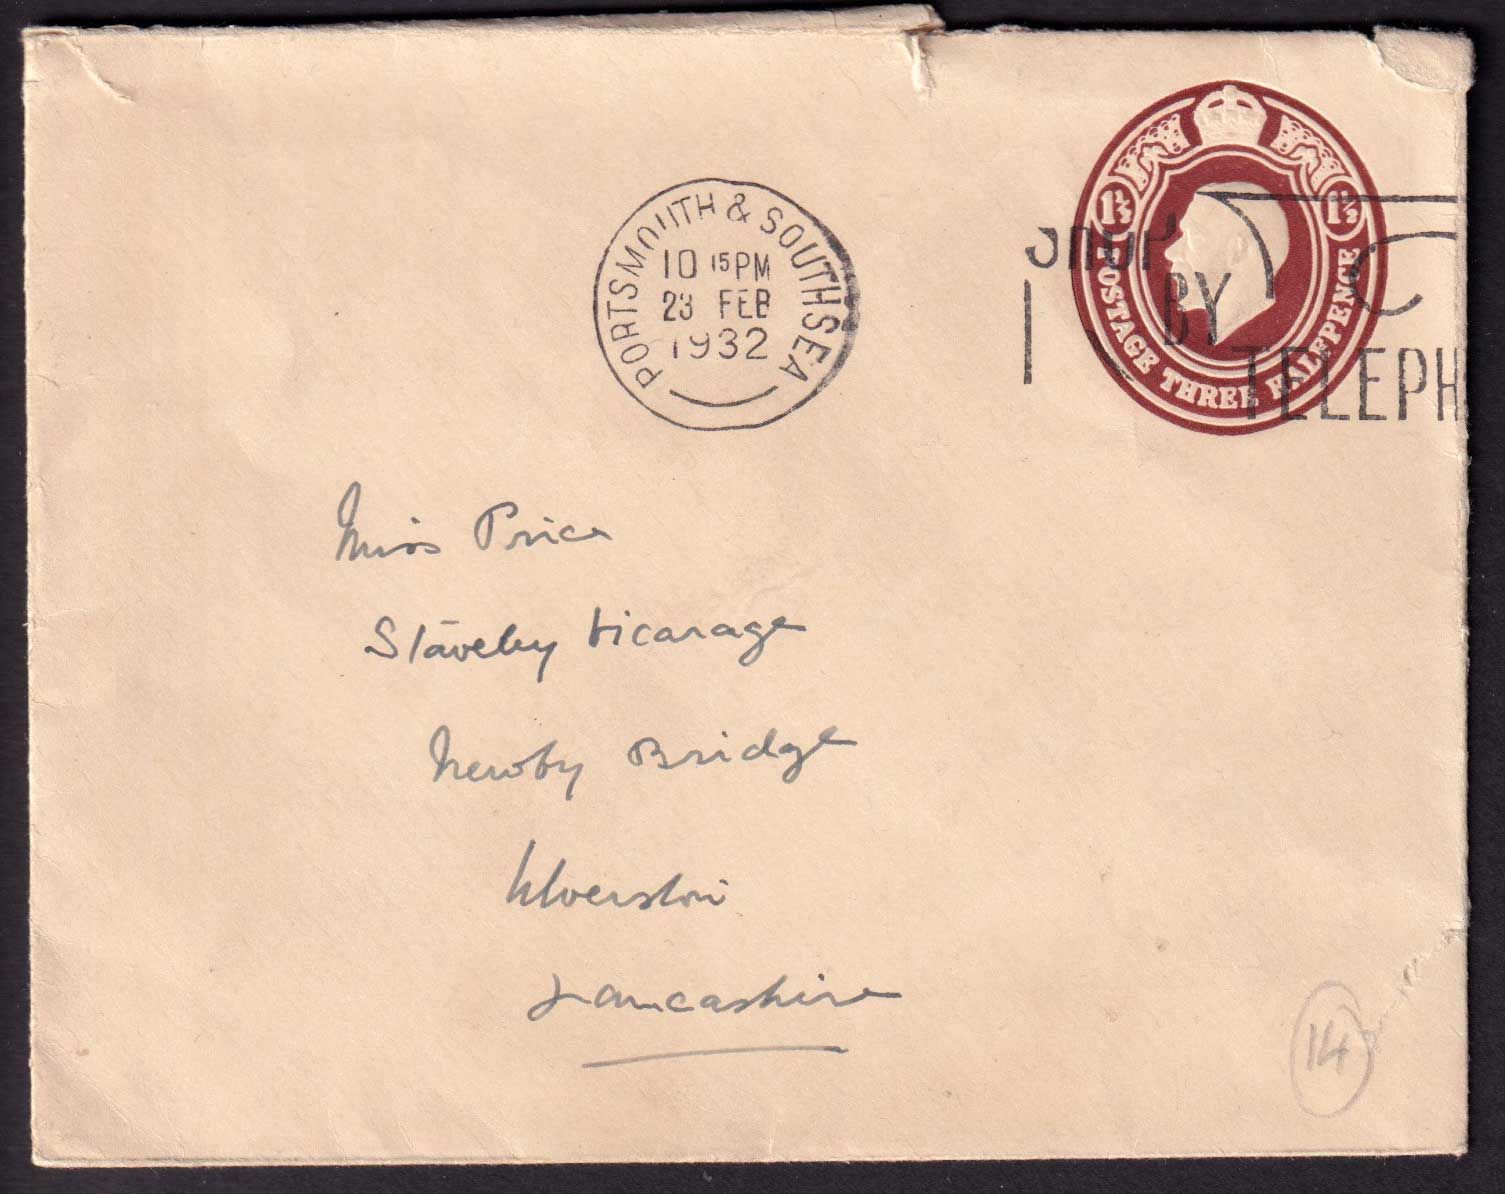 PORTSMOUTH & SOUTHSEA
10 15 PM
23 FEB
1932
1½ 1½
POSTAGE THREE HALFPENCE
SHOP
BY
TELEPH
Miss Price
Staveley Vicarage
Newby Bridge
Ulverston
Lancashire
14